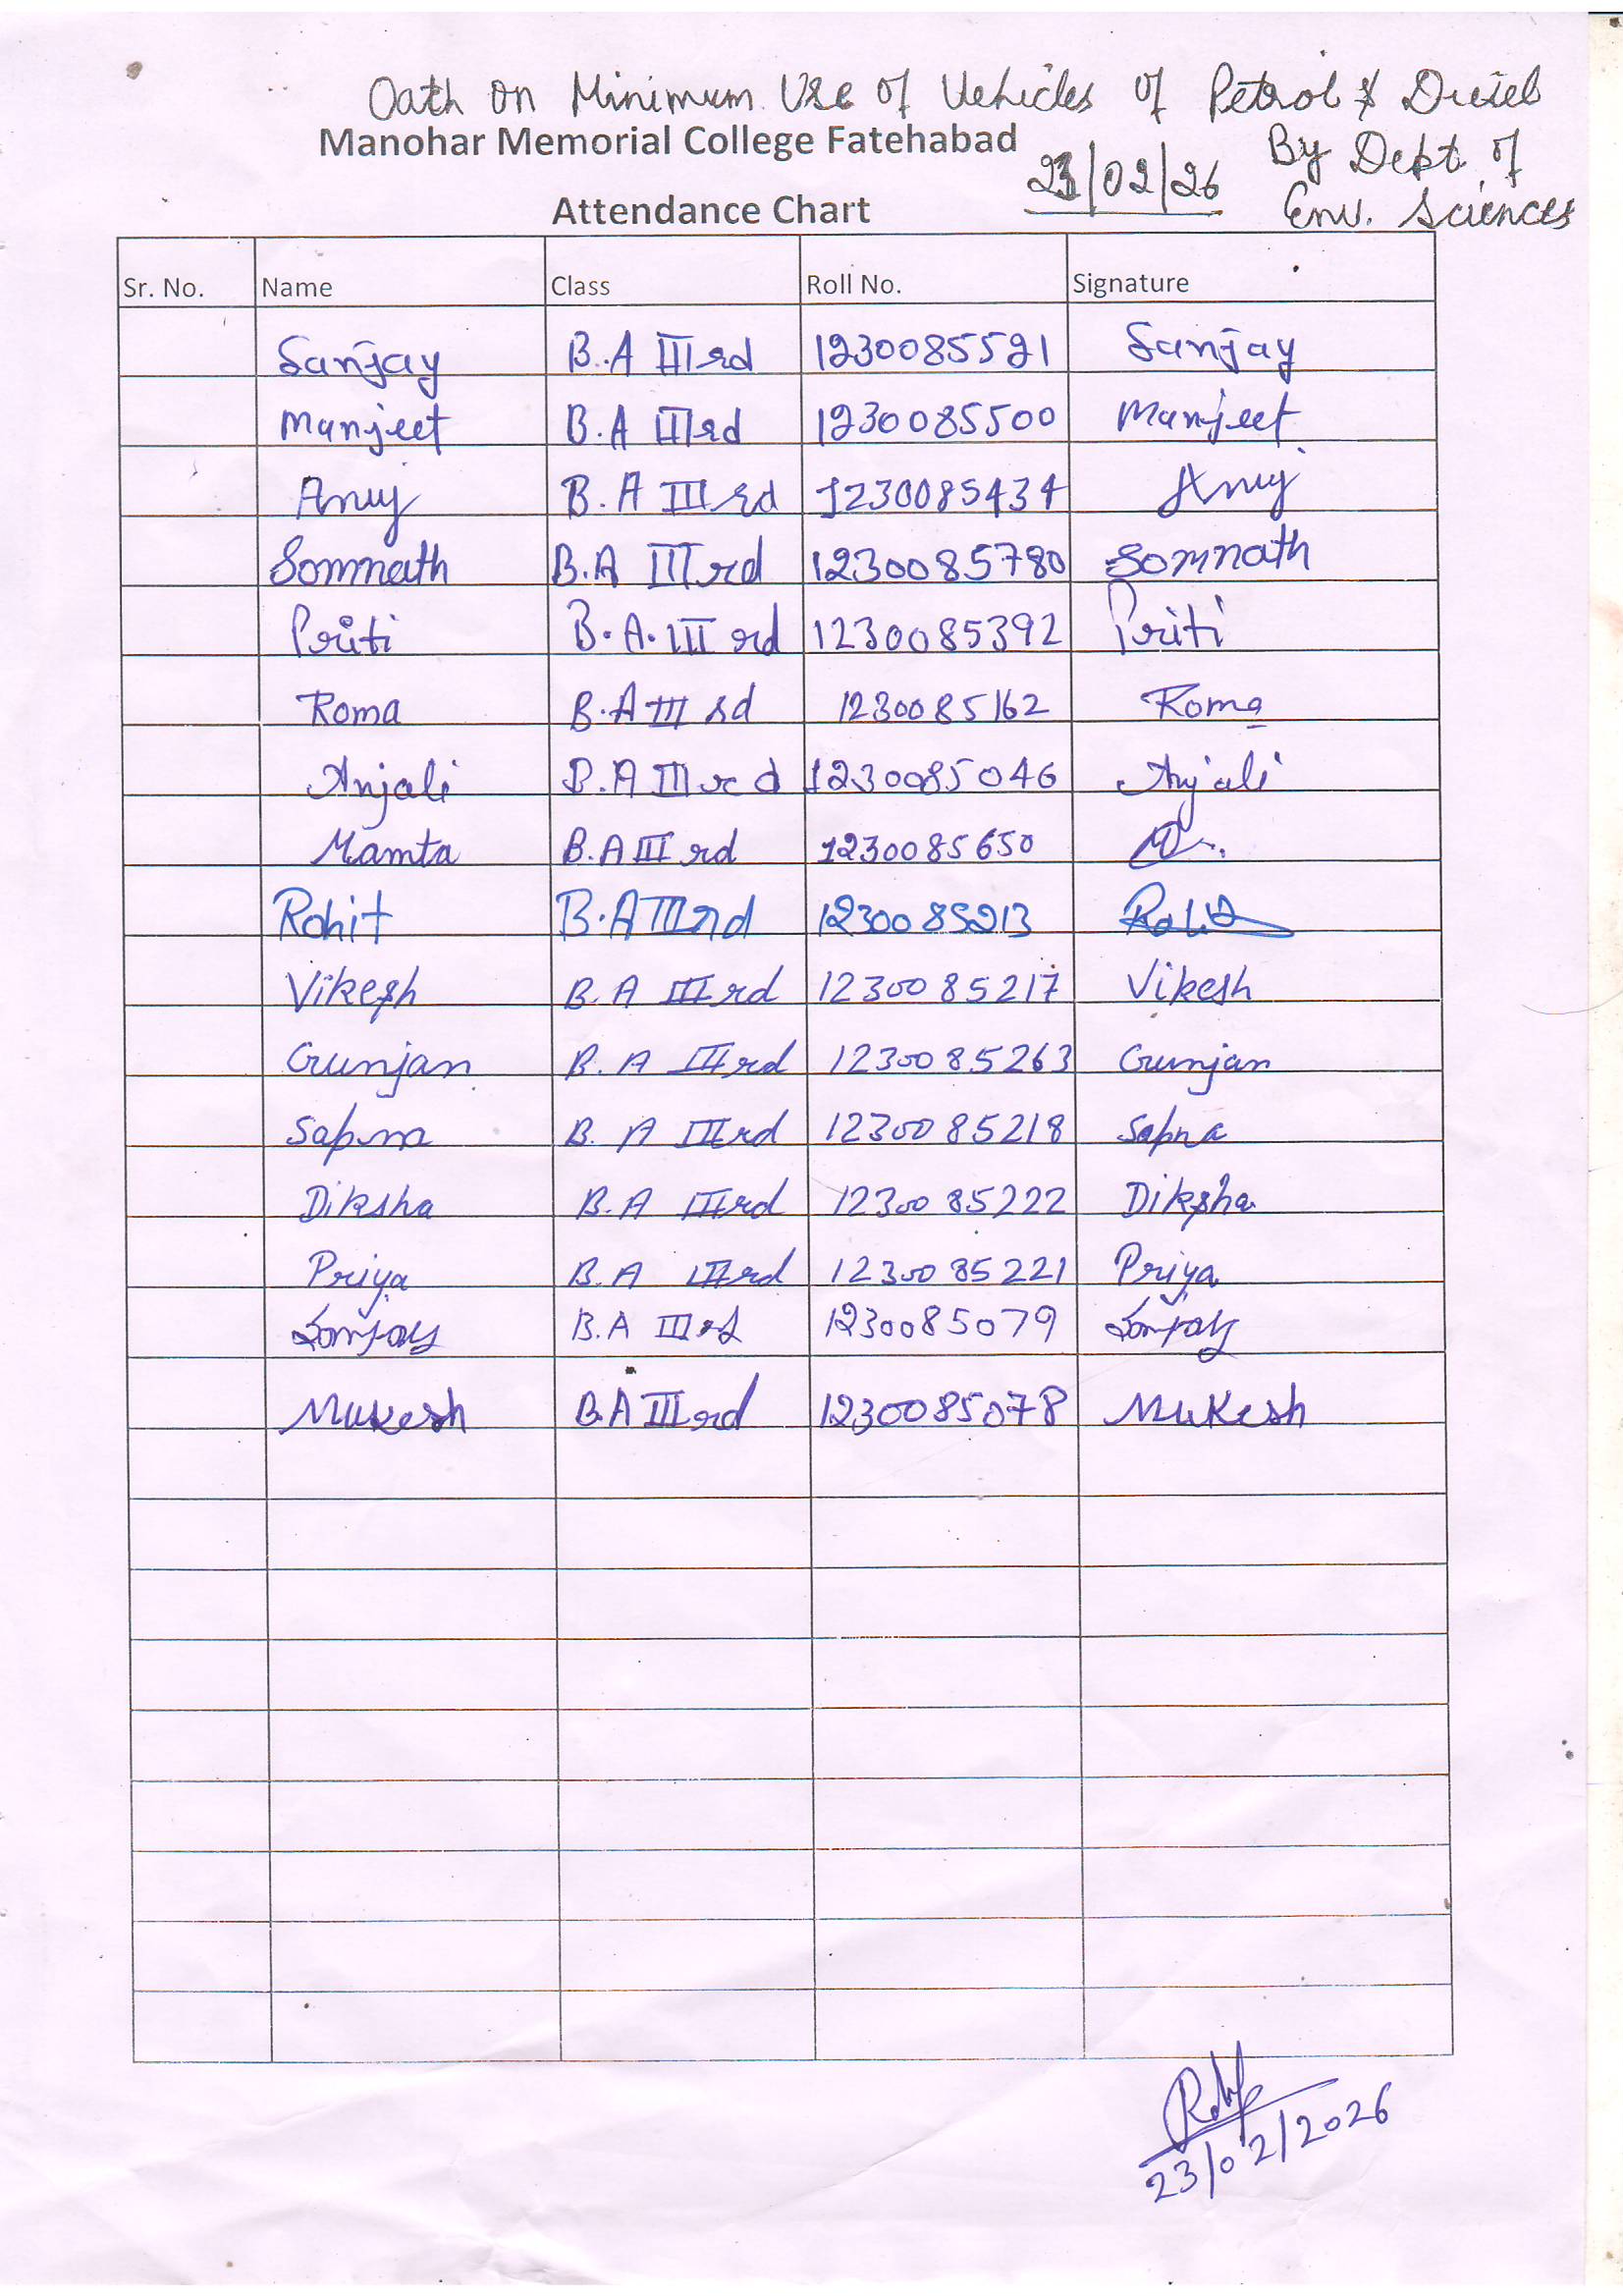 Oath on Minimum Use of Vehicles of Petrol & Diesel
Manohar Memorial College Fatehabad
23/02/26
By Dept. of
Env. Sciences
Attendance Chart
Sr. No. Name Class Roll No. Signature
Sanjay B.A IIIrd 1230085521 Sanjay
Manjeet B.A IIIrd 1230085500 Manjeet
Anuj B.A IIIrd 1230085434 Anuj
Somnath B.A IIIrd 1230085780 Somnath
Priti B.A.III rd 1230085392 Priti
Roma B.A III rd 1230085162 Roma
Anjali B.A IIIrd 1230085046 Anjali
Mamta B.A III rd 1230085650
Rohit B.A IIIrd 1230085213 Rohit
Vikesh B.A IIIrd 1230085217 Vikesh
Gunjan B.A IIIrd 1230085263 Gunjan
Sapna B.A IIIrd 1230085218 Sapna
Diksha B.A IIIrd 1230085222 Diksha
Priya B.A IIIrd 1230085221 Priya
Sanjay B.A IIIrd 1230085079 Sanjay
Mukesh B.A IIIrd 1230085078 Mukesh
23/02/2026